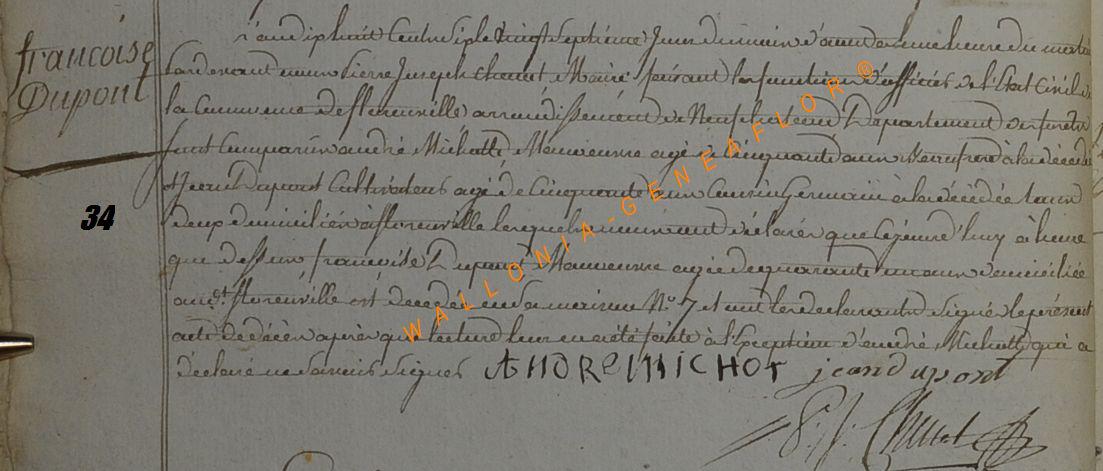 françoise
Dupont
34
l'an dix huit cent le vingt septième jour du mois à une heure du matin
par devant nous Pierre Joseph Chenot Maire faisant les fonctions d'officier de l'Etat Civil de
la Commune de florenville arrondissement de Neufchateau Département des forets
sont comparus andré Michotte Manoeuvre agé de cinquante ans à la décédée
et Jean Dupont Cultivateur agé de Cinquante ans Cousin Germain à la décédée tous
deux domiciliés à florenville lesquels m'ont déclarés que cejourd'huy à heure
que dessus françoise Dupont Manoeuvre agée de quarante un ans domiciliée
au dt florenville est décédée en sa maison No. 7 et ont les déclarants signé le présent
acte de décès après que lecture leur en a été faite à l'Exception d'andré Michotte qui a
déclaré ne savoir signer ANDRE MICHOT jean dupont
P. J. Chenot
WALLONIA-GENEAFLOR ®